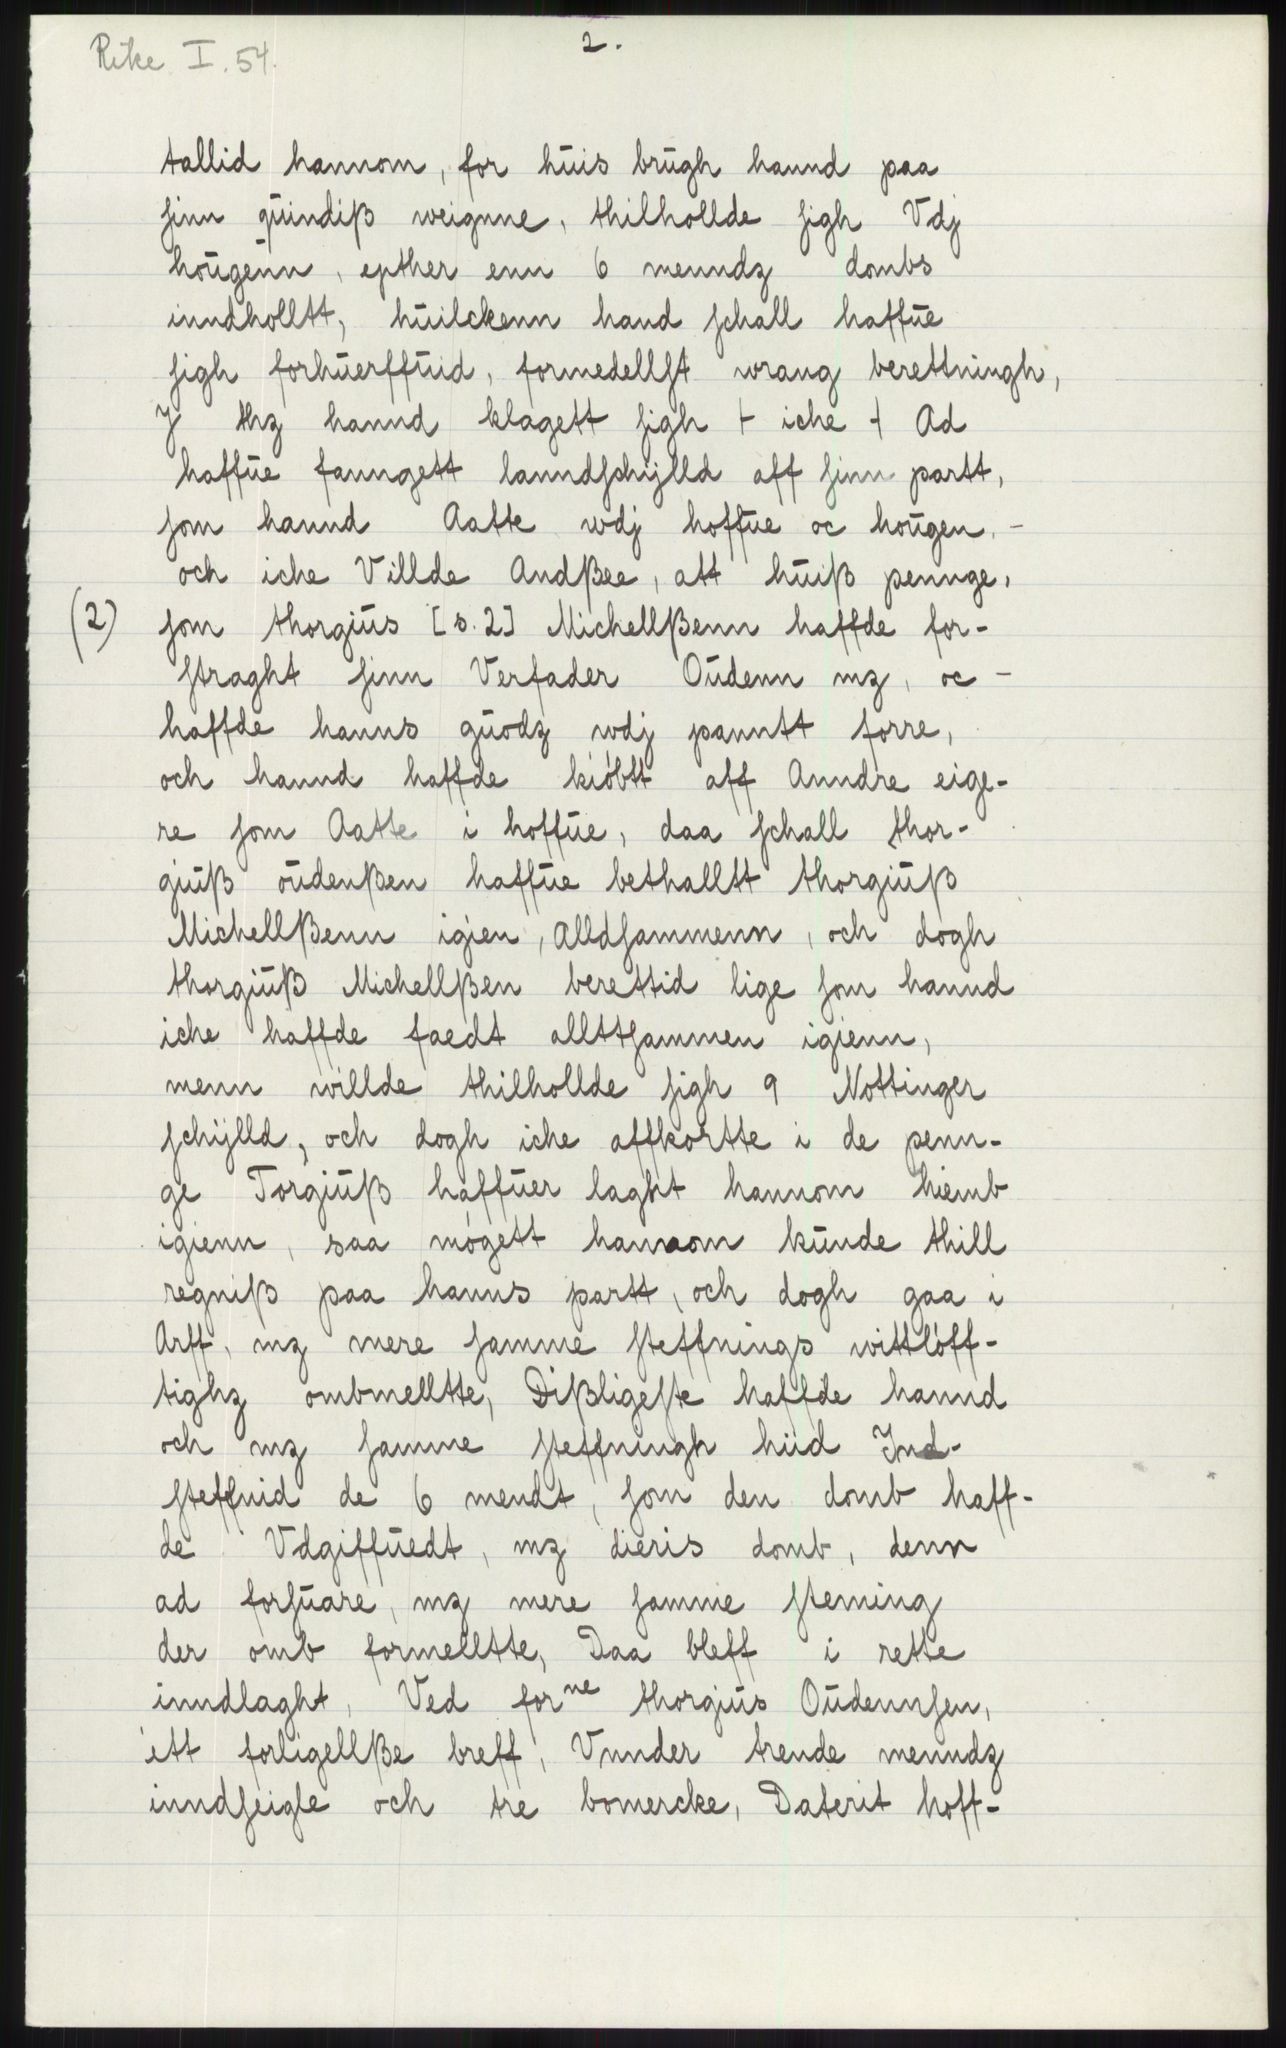 Rike I. 54.
2.
tallid hannom, for huis brugh hannd paa
sinn quindiß weignne, thilhollde sigh Vdj
hougenn, epther enn 6 menndz dombs
inndholltt, huilckenn hand schall haffue
sigh forhuerffuid, formedellst wrang berettningh,
J thz hannd klagett sigh + iche + Ad
haffue fanngett lanndschylld aff sinn partt,
som hannd Aatte wdj hoffue oc hougen. -
och iche Villde Andßee, att huiß pennge,
(2) som thorgius [s. 2] Michellßenn haffde for-
straght sinn Verfader Oudenn mz, oc -
haffde hanns guodz wdj panntt forre,
och hannd haffde kióbtt aff Anndre eige-
re som Aatte i hoffue, daa schall thor-
giuß oudenßen haffue bethalltt thorgiuß
Michellßenn igien, Alldsammenn, och dogh
thorgiuß Michellßen berettid lige som hannd
iche haffde faedt allttsammen igienn,
menn willde thilhollde sigh 9 Nottinger
schylld, och dogh iche affkortte i de penn-
ge Torgiuß haffuer laght hannom hiemb
igienn, saa mógett hannom kunde thill
regniß paa hanns partt, och dogh gaa i
Arff, mz mere samme steffnings wittlóff-
tighz ombmelltte, Dißligeste haffde hannd
och mz samme steffningh hiid Ind-
steffnid de 6 mendt, som den domb haff-
de Vdgiffuedt, mz dieris domb, denn
ad forsuare, mz mere samme steming
der omb formelltte, Daa bleff i rette
inndlaght, Ved forne thorgius Oudennsen,
itt forligellße breff, Vnnder trende menndz
inndseigle och tre bomercke, Daterit hoff-